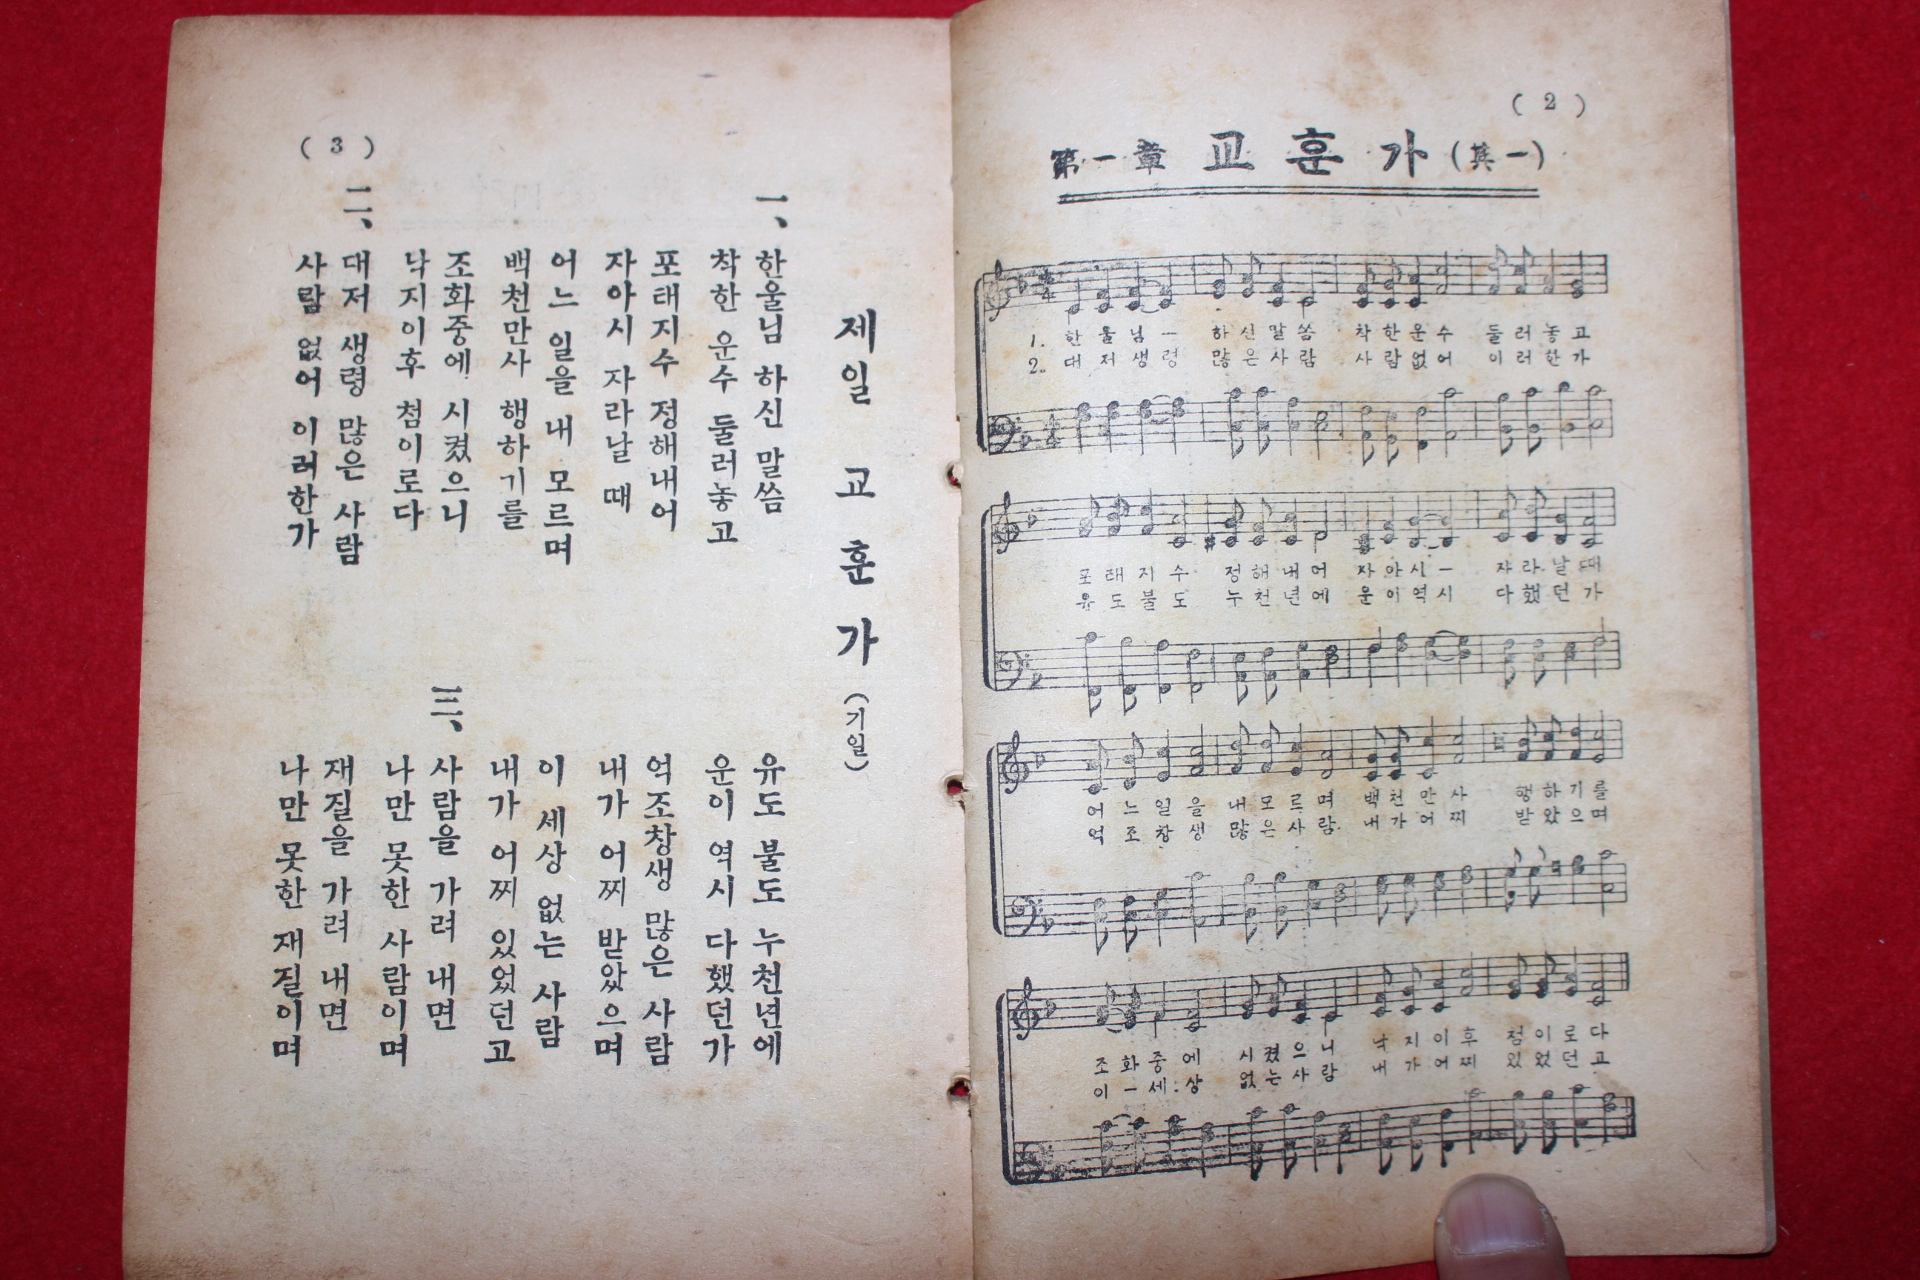 ( 2 )
第一章 교훈가 (其一)
1. 한울님ー 하신말씀 착한운수 둘러놓고
2. 대저생령 많은사람 사람없어 이러한가
포태지수 정해내어 자아시ー 자라날때
유도불도 누천년에 운이역시 다했던가
어느일을 내모르며 백천만사 행하기를
억조창생 많은사람 내가어찌 받았으며
조화중에 시켰으니 낙지이후 첨이로다
이ー세상 없는사람 내가어찌 있었던고
( 3 )
제일 교훈가 (기일)
一、
한울님 하신 말씀
착한 운수 둘러놓고
포태지수 정해내어
자아시 자라날 때
어느 일을 내 모르며
백천만사 행하기를
조화중에 시켰으니
낙지이후 첨이로다
二、
대저 생령 많은 사람
사람 없어 이러한가
유도 불도 누천년에
운이 역시 다했던가
억조창생 많은 사람
내가 어찌 받았으며
이 세상 없는 사람
내가 어찌 있었던고
三、
사람을 가려 내면
나만 못한 사람이며
재질을 가려 내면
나만 못한 재질이며